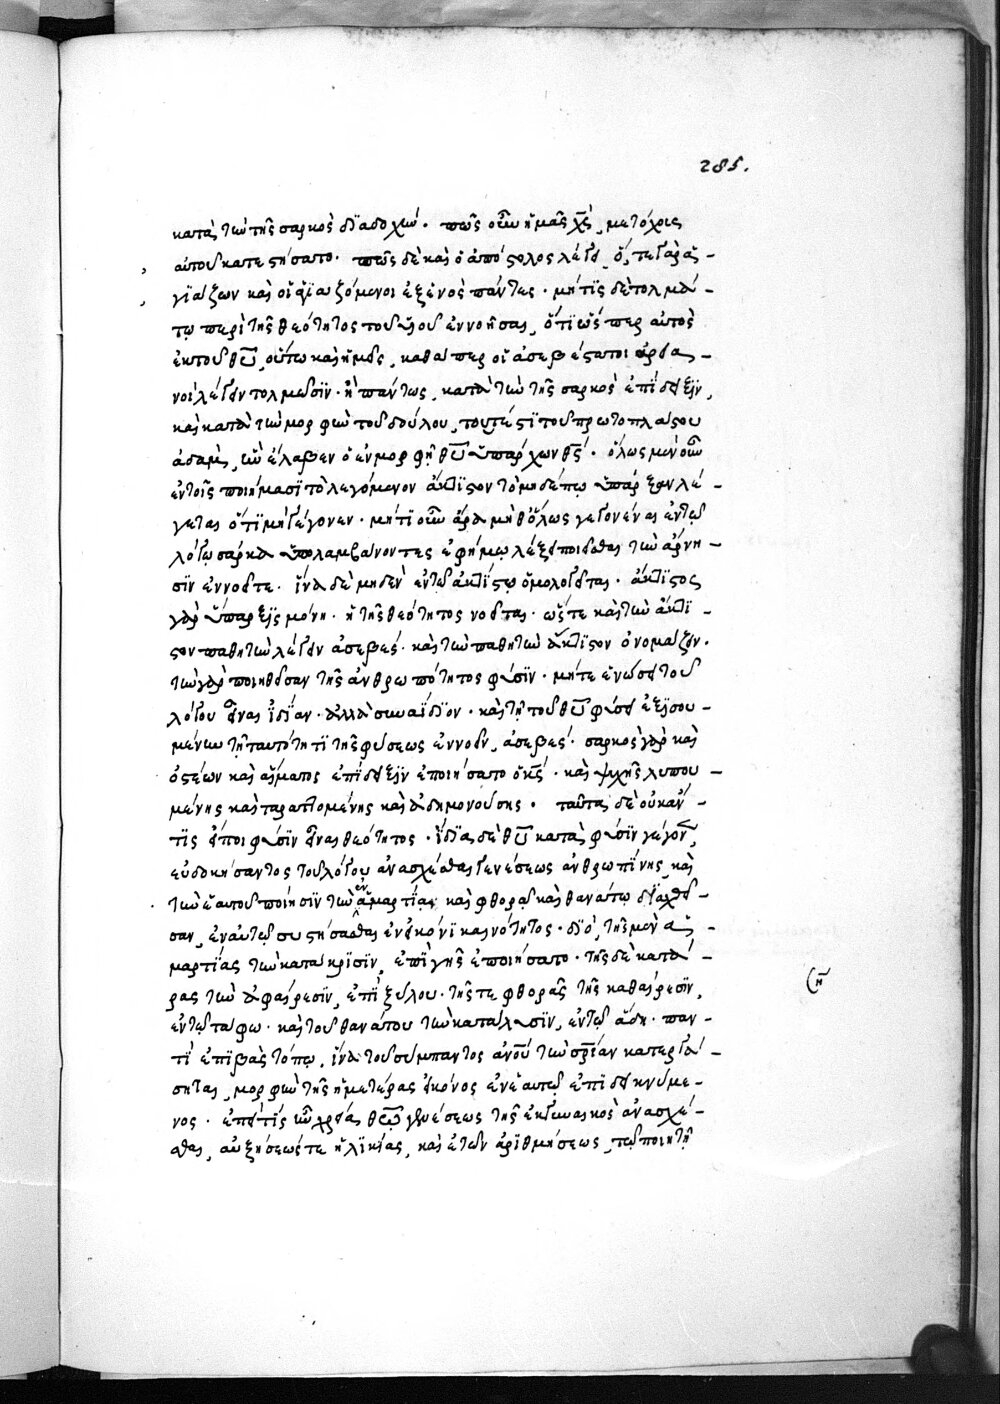 285.
κατὰ τὴν τῆς σαρκὸς διαδοχήν. πῶς οὖν ἡμᾶς χς̄ μετόχους
αὐτοῦ κατεστήσατο. πῶς δὲ καὶ ὁ ἀπόστολος λέγει, ὅ, τε γὰρ ἁ-
γιάζων καὶ οἱ ἁγιαζόμενοι ἐξ ἑνὸς πάντες. μή τις δὲ τολμά-
τω περὶ τῆς θεότητος τοῦ υἱοῦ ἐννοῆσαι, ὅτι ὥσπερ αὐτὸς
ἐκ τοῦ θῦ, οὕτω καὶ ἡμεῖς, καθάπερ οἱ ἀσεβέστατοι ἀρεια-
νοὶ λέγειν τολμῶσιν. ἢ πάντως, κατὰ τὴν τῆς σαρκὸς ἐπίδειξιν,
καὶ κατὰ τὴν μορφὴν τοῦ δούλου, τουτέστι τοῦ πρωτοπλάστου
ἀδάμ, ἣν ἔλαβεν ὁ ἐν μορφῇ θῦ ὑπάρχων θς̄. ὅλως μὲν οὖν
ἐν τοῖς ποιήμασι τὸ λεγόμενον ἄκτιστον τὸ μηδέπω ὑπάρξαν λέ-
γεται ὅτι μὴ γέγονεν. μήτι οὖν ἄρα μὴ θ' ὅλως γεγονέναι ἐν τῷ
λόγῳ σάρκα ὑπολαμβάνοντες εὐφήμῳ λέξει ποιεῖσθαι τὴν ἄρνη-
σιν ἐννοεῖτε. ἵνα δὲ μηδὲν ἐν τῷ ἀκτίστῳ ὁμολογεῖται. ἄκτιστος
γὰρ ὕπαρξις μόνη. ἡ τῆς θεότητος νοεῖται. ὥστε καὶ τὴν ἄκτι-
στον παθητὴν λέγειν ἀσεβές. καὶ τὴν παθητὴν ἄκτιστον ὀνομάζειν.
τὴν γὰρ ποιηθεῖσαν τῆς ἀνθρωπότητος φύσιν. μήτε ἑνώσει τοῦ
λόγου εἶναι ἰδίαν. ἀλλὰ συναΐδιον. καὶ τῇ τοῦ θῦ φύσει ἐξισου-
μένην τῇ ταυτότητι τῆς φύσεως ἐννοεῖν, ἀσεβές. σαρκὸς γὰρ καὶ
ὀστέων καὶ αἵματος ἐπίδειξιν ἐποιήσατο ὁ κς̄. καὶ ψυχῆς λυπου-
μένης καὶ ταραττομένης καὶ ἀδημονούσης. ταῦτα δὲ οὐκ ἄν
τις εἴποι φύσιν εἶναι θεότητος. ἴδια δὲ θῦ κατὰ φύσιν γέγονεν,
εὐδοκήσαντος τοῦ λόγου ἀνασχέσθαι γενέσεως ἀνθρωπίνης, καὶ
τὴν ἑαυτοῦ ποίησιν τὴν ἐν ἁμαρτίαις καὶ φθορᾷ καὶ θανάτῳ διαχθεῖ-
σαν, ἐν αὐτῷ συστήσασθαι ἐν εἰκόνι καινότητος. διὸ, τῆς μὲν ἁ-
μαρτίας τὴν κατάκρισιν, ἐπὶ γῆς ἐποιήσατο. τῆς δὲ κατά-
ρας τὴν ἀφαίρεσιν, ἐπὶ ξύλου. τῆς τε φθορᾶς τῆς καθαίρεσιν,
ἐν τῷ τάφῳ. καὶ τοῦ θανάτου τὴν κατάλυσιν, ἐν τῷ ἅδῃ. παν-
τὶ ἐπιβὰς τόπῳ, ἵνα τοῦ σύμπαντος ἀνοῦ τὴν σρίαν κατεργά-
σηται, μορφὴν τῆς ἡμετέρας εἰκόνος ἐν ἑαυτῷ ἐπιδεικνύμε-
νος. ἐπεὶ τίς ἦν χρεία θῷ γεννήσεως τῆς ἐκ γυναικὸς ἀνασχέ-
σθαι, αὐξήσεώς τε ἡλικίας, καὶ ἐτῶν ἀριθμήσεως, τῷ ποιητῇ